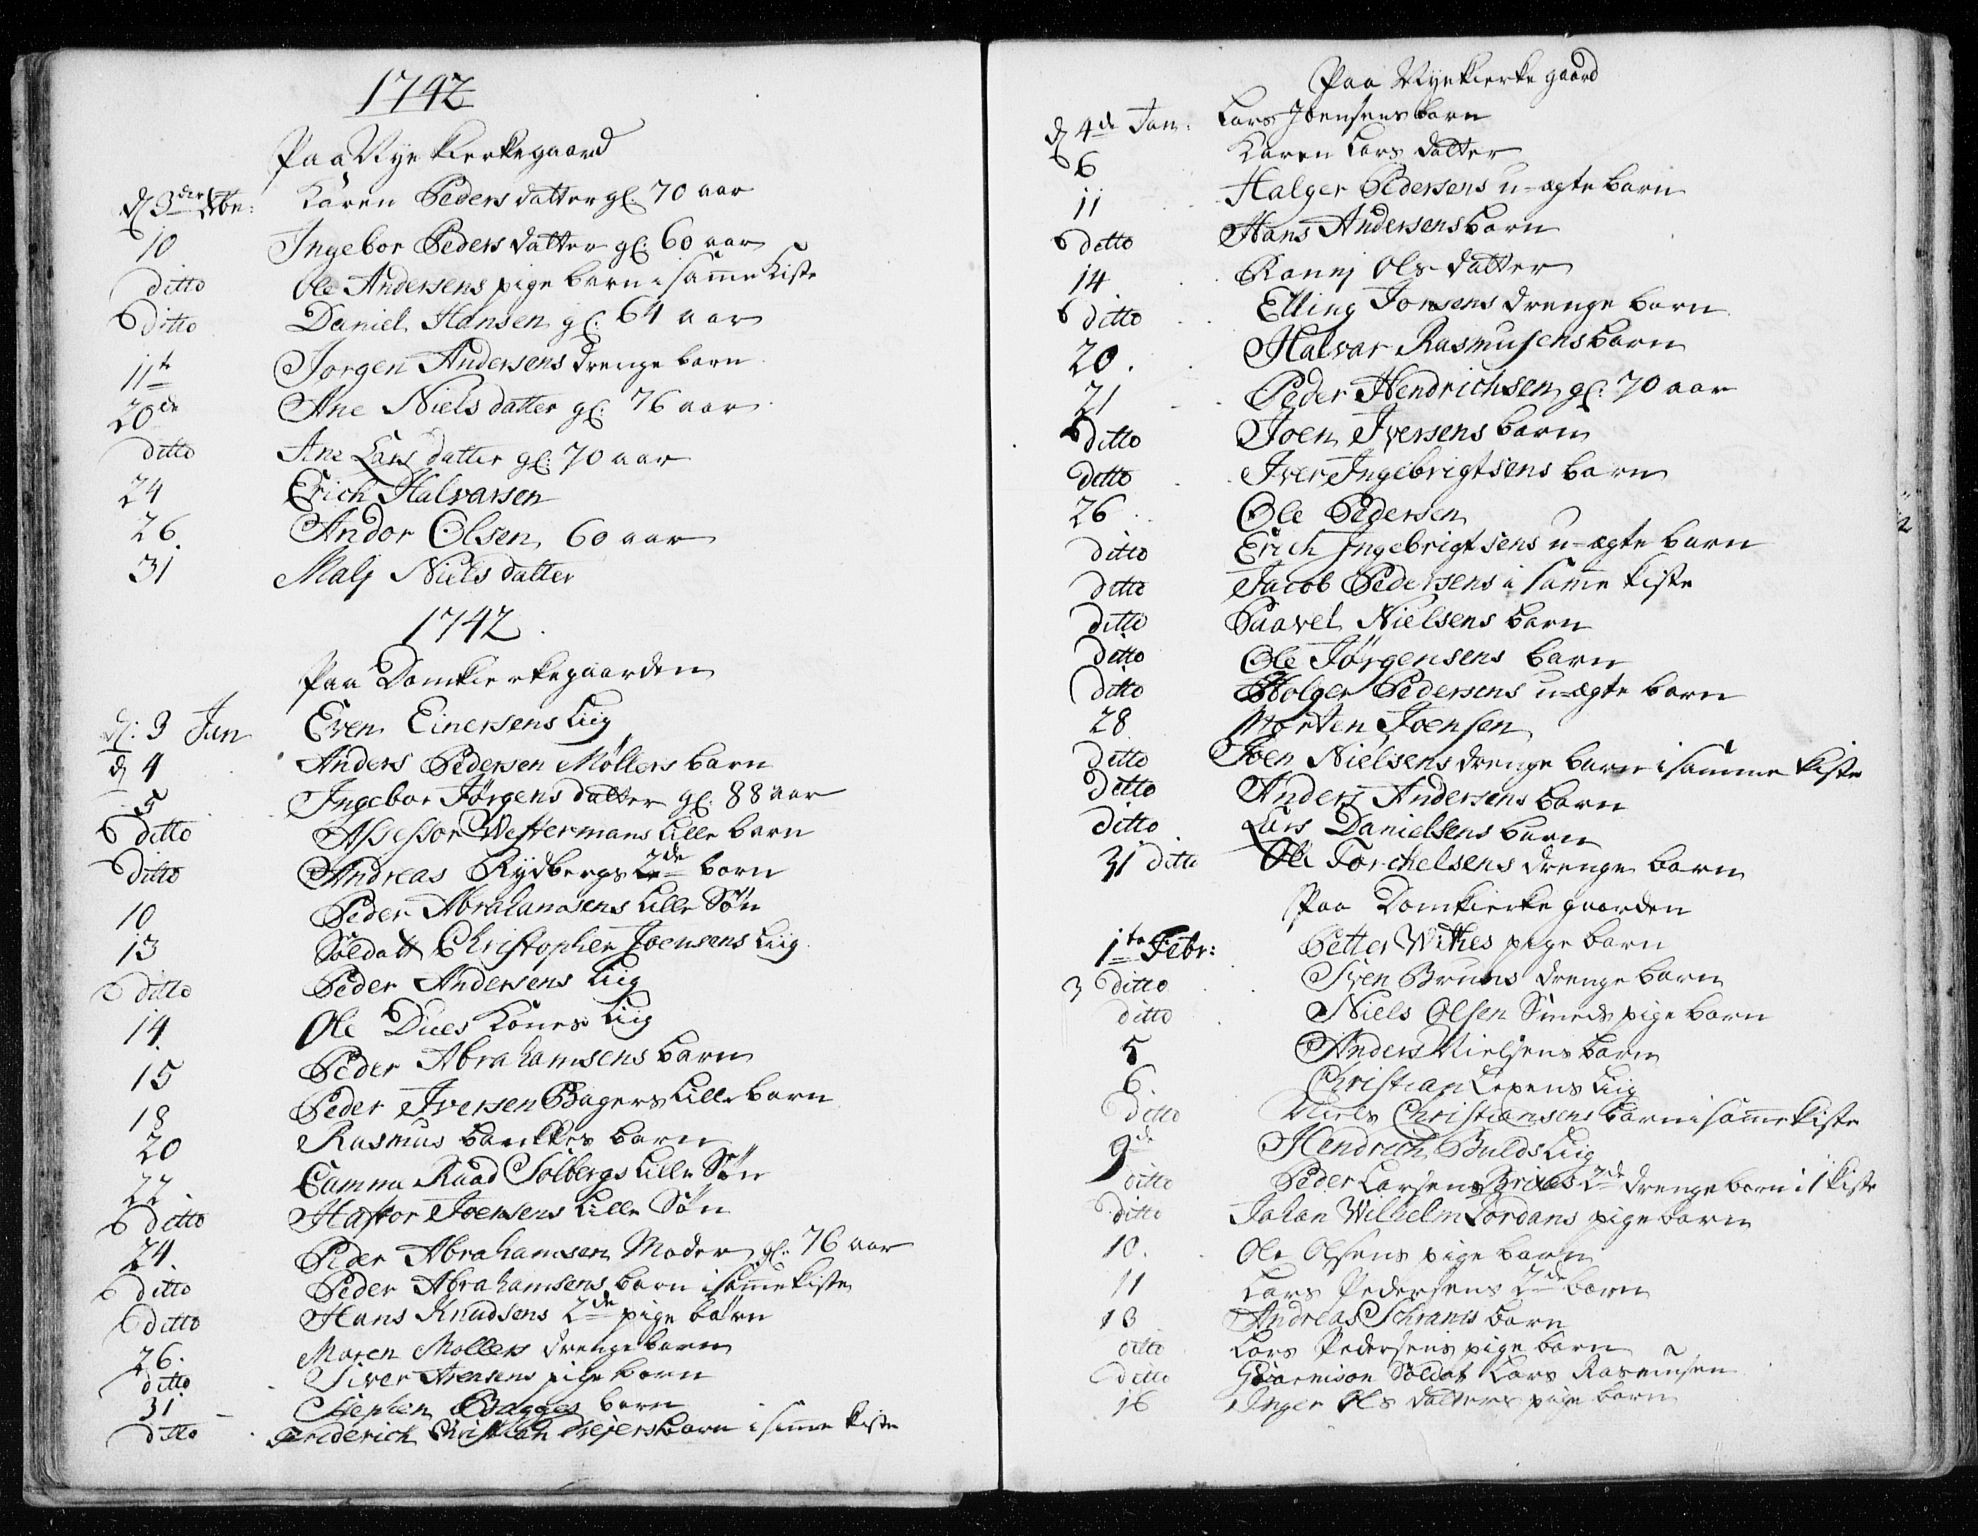 1742
Paa Nye Kierkegaard
d 3der Xbr: Karen Peders datter gl. 70 aar
10 Ingebor Peders datter gl: 60 aar
ditto Ole Andersens pige barn i same Kiste
ditto Daniel Hansen gl: 64 aar
11te Jorgen Andersens drenge barn
20de Ane Niels datter gl: 76 aar
ditto Ane Lars datter gl: 70 aar
24 Erich Halvarsen
26 Andor Olsen 60 aar
31 Malj Niels datter
1742
Paa Domkierkegaarden
d: 3 Jan Even Einersens Liig
d 4 Anders Pedersen Møllers barn
5 Ingebor Jørgens datter gl: 88 aar
ditto Assessor Westermans Lille barn
ditto Andreas Rydbergs 2de barn
10 Peder Abrahamsens Lille Søn
13 Soldatt Christopher Joensens Liig
ditto Peder Andersens Liig
14 Ole Dues Kones Liig
15 Peder Abrahamsens barn
18 Peder Iversen Bagers Lille barn
20 Rasmus Banckes barn
22 Camma Raad Solbergs Lille Søn
ditto Haftor Joensens Lille Søn
24. Peder Abrahamsen Moder gl: 76 aar
ditto Peder Abrahamsens barn i same Kiste
ditto Hans Knudsens 2de pige børn
26. Maren Mollers drenge barn
ditto Siver Arensens pige barn
31 Stephen Bagges barn
ditto Friderich Christian Meiers barn i same Kiste
Paa Nye Kierke gaard
d 4de Jan: Lars Joensens barn
6 Karen Lars datter
11 Halger Pedersens u-ægte barn
ditto Hans Andersens barn
14 Ranni Ols datter
ditto Elling Jonsens drenge barn
20. Halvar Rasmusens barn
21 Peder Hendrichsen gl: 70 aar
ditto Joen Iversens barn
ditto Iver Ingebrigtsens barn
26 Ole Pedersen
ditto Erich Ingebrigtsens u-ægte barn
ditto Jacob Pedersens i same Kiste
ditto Paavel Nielsens barn
ditto Ole Jørgensens barn
ditto Holger Pedersens u-ægte barn
28 Morten Joensen
ditto Joen Nielsens drenge barn i samme Kiste
ditto Anders Andersens barn
ditto Lars Danielsens barn
31 ditto Ole Torchelsens drenge barn
Paa Domkierke gaarden
1te Febr: Petter Withes pige barn
3 ditto Sven Bruns drenge barn
ditto Niels Olsen Smeds pige barn
5 Anders Nielsens barn
6. Christian Lepens Liig
ditto Niels Christiansens barn i same Kiste
9de Hendrich Bulds Liig
ditto Peder Larsens 2de drenge barn i 1 Kiste
ditto Johan Wilhelm Lordans pige barn
10. Ole Olsens pige barn
11 Lars Pedersens 2de barn
13 Andreas Schrams barn
ditto Lars Pedersens pige barn
ditto Guarnison Soldat Lars Rasmusen
16 Inger Ols datters pige barn